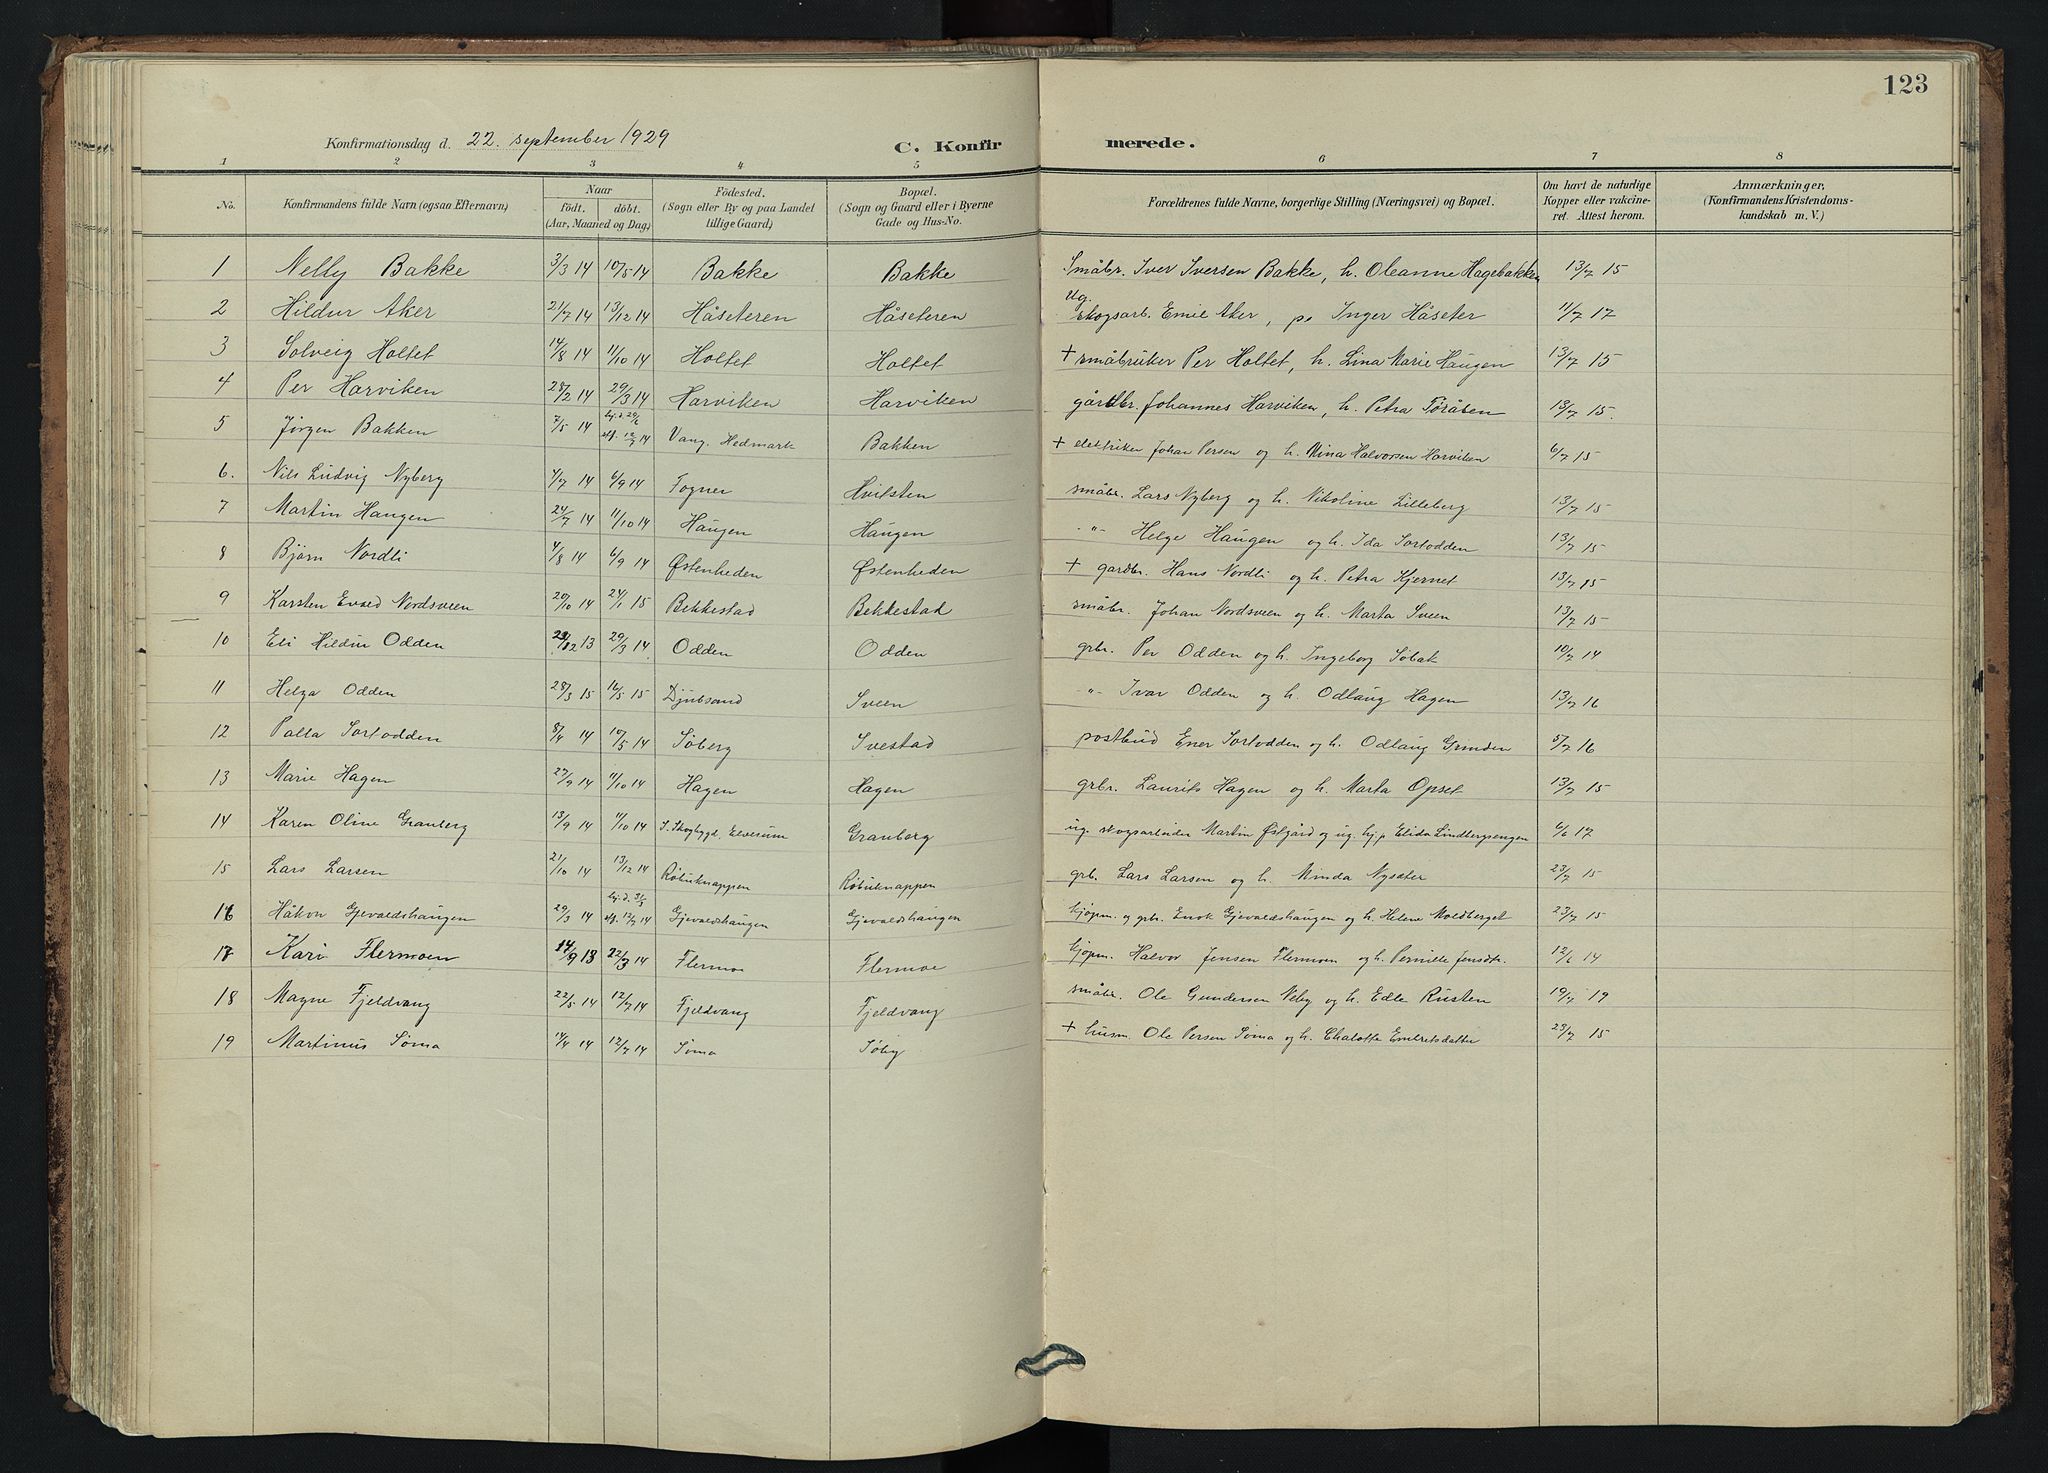 123
Konfirmationsdag d. 22. september 1929 C. Konfirmerede.
1 2 3 4 5 6 7 8
No. Konfirmandens fulde Navn (ogsaa Efternavn) Naar födt. döbt. (Aar, Maaned og Dag) Födested. (Sogn eller By og paa Landet tillige Gaard) Bopæl. (Sogn og Gaard eller i Byerne Gade og Hus-No. Forældrenes fulde Navne, borgerlige Stilling (Næringsvei) og Bopæl. Om havt de naturlige Kopper eller vakcineret. Attest herom. Anmærkninger, (Konfirmandens Kristendomskundskab m. V.)
1 Nelly Bakke 3/3 14 10/5 14 Bakke Bakke Småbr. Iver Iversen Bakke, h. Oleanne Hagebakken 13/7 15
2 Hildur Aker 21/7 14 13/12 14 Håseteren Håseteren Ug. skogsarb. Emil Aker, p. Inger Håseter 11/7 17
3 Solveig Holtet 14/8 14 11/10 14 Holtet Holtet + småbruker Per Holtet, h. Lina Marie Haugen 13/7 15
4 Per Harviken 28/2 14 29/3 14 Harviken Harviken gårdbr. Johannes Harviken, h. Petra Toråsen 13/7 15.
5 Jørgen Bakken 7/5 14 hj.d. 29/6 stf. 12/7 14 Vang. Hedmark Bakken + elektriker Johan Persen og h. Mina Halvorsen Harviken 6/7 15
6. Nils Ludvig Nyberg 4/7 14 6/9 14 Togner Hvilsten småbr. Lars Nyberg og h. Nikoline Lilleberg 13/7 15
7 Martin Haugen 24/7 14 11/10 14 Haugen Haugen -"- Helge Haugen og h. Ida Sortodden 13/7 15
8 Bjørn Nordli 4/8 14 6/9 14 Østenheden Østenheden + gardbr. Hans Nordli og h. Petra Kjernet 13/7 15
9 Karsten Evald Nordsveen 20/10 14 24/1 15 Bekkestad Bekkestad småbr. Johan Nordsveen og h. Marta Sveen 13/7 15
10 Eli Hildur Odden 29/12 13 29/3 14 Odden Odden grbr. Per Odden og h. Ingeborg Søbak 10/7 14
11 Helga Odden 28/3 15 16/5 15 Djubsand Sveen -"- Ivar Odden og h. Odlaug Hagen 13/7 16
12 Palla Sortodden 8/4 14 10/5 14 Søberg Svestad postbud Ener Sortodden og h. Odlaug Grinden 5/7 16
13 Marie Hagen 27/9 14 11/10 14 Hagen Hagen grbr. Laurits Hagen og h. Marta Opset 13/7 15
14 Karen Oline Granberg 13/9 14 11/10 14 S. Skogbygd. Elverum Granberg ug. skogsarbeider Martin Østgård og ug. hj.p Elida Lindbergsengen 6/6 17
15 Lars Larsen 21/10 14 13/12 14 Røbuknappen Røbuknappen grb. Lars Larsen og h. Minda Nysæter 23/7 15
16 Håkon Gjevaldshaugen 29/3 14 hj.d. 31/3 stf. 12/7 14 Gjevaldshaugen Gjevaldshaugen kjøpm. og grbr. Enok Gjevaldshaugen og h. Helene Moldberget 23/7 15
17 Kari Flermoen 14/9 13 22/3 14 Flermoe Flermoe kjøpm. Halvor Jensen Flermoen og h. Pernille Jensdtr. 12/6 14
18 Magne Fjeldvang 22/5 14 12/7 14 Fjeldvang Fjeldvang småbr. Ole Gundersen Neby og h. Edle Rusten 19/7 19
19 Martinus Søma 14/4 14 12/7 14 Søma Søby + husm. Ole Persen Søma og h. Chalotte Embretsdatter 23/7 15